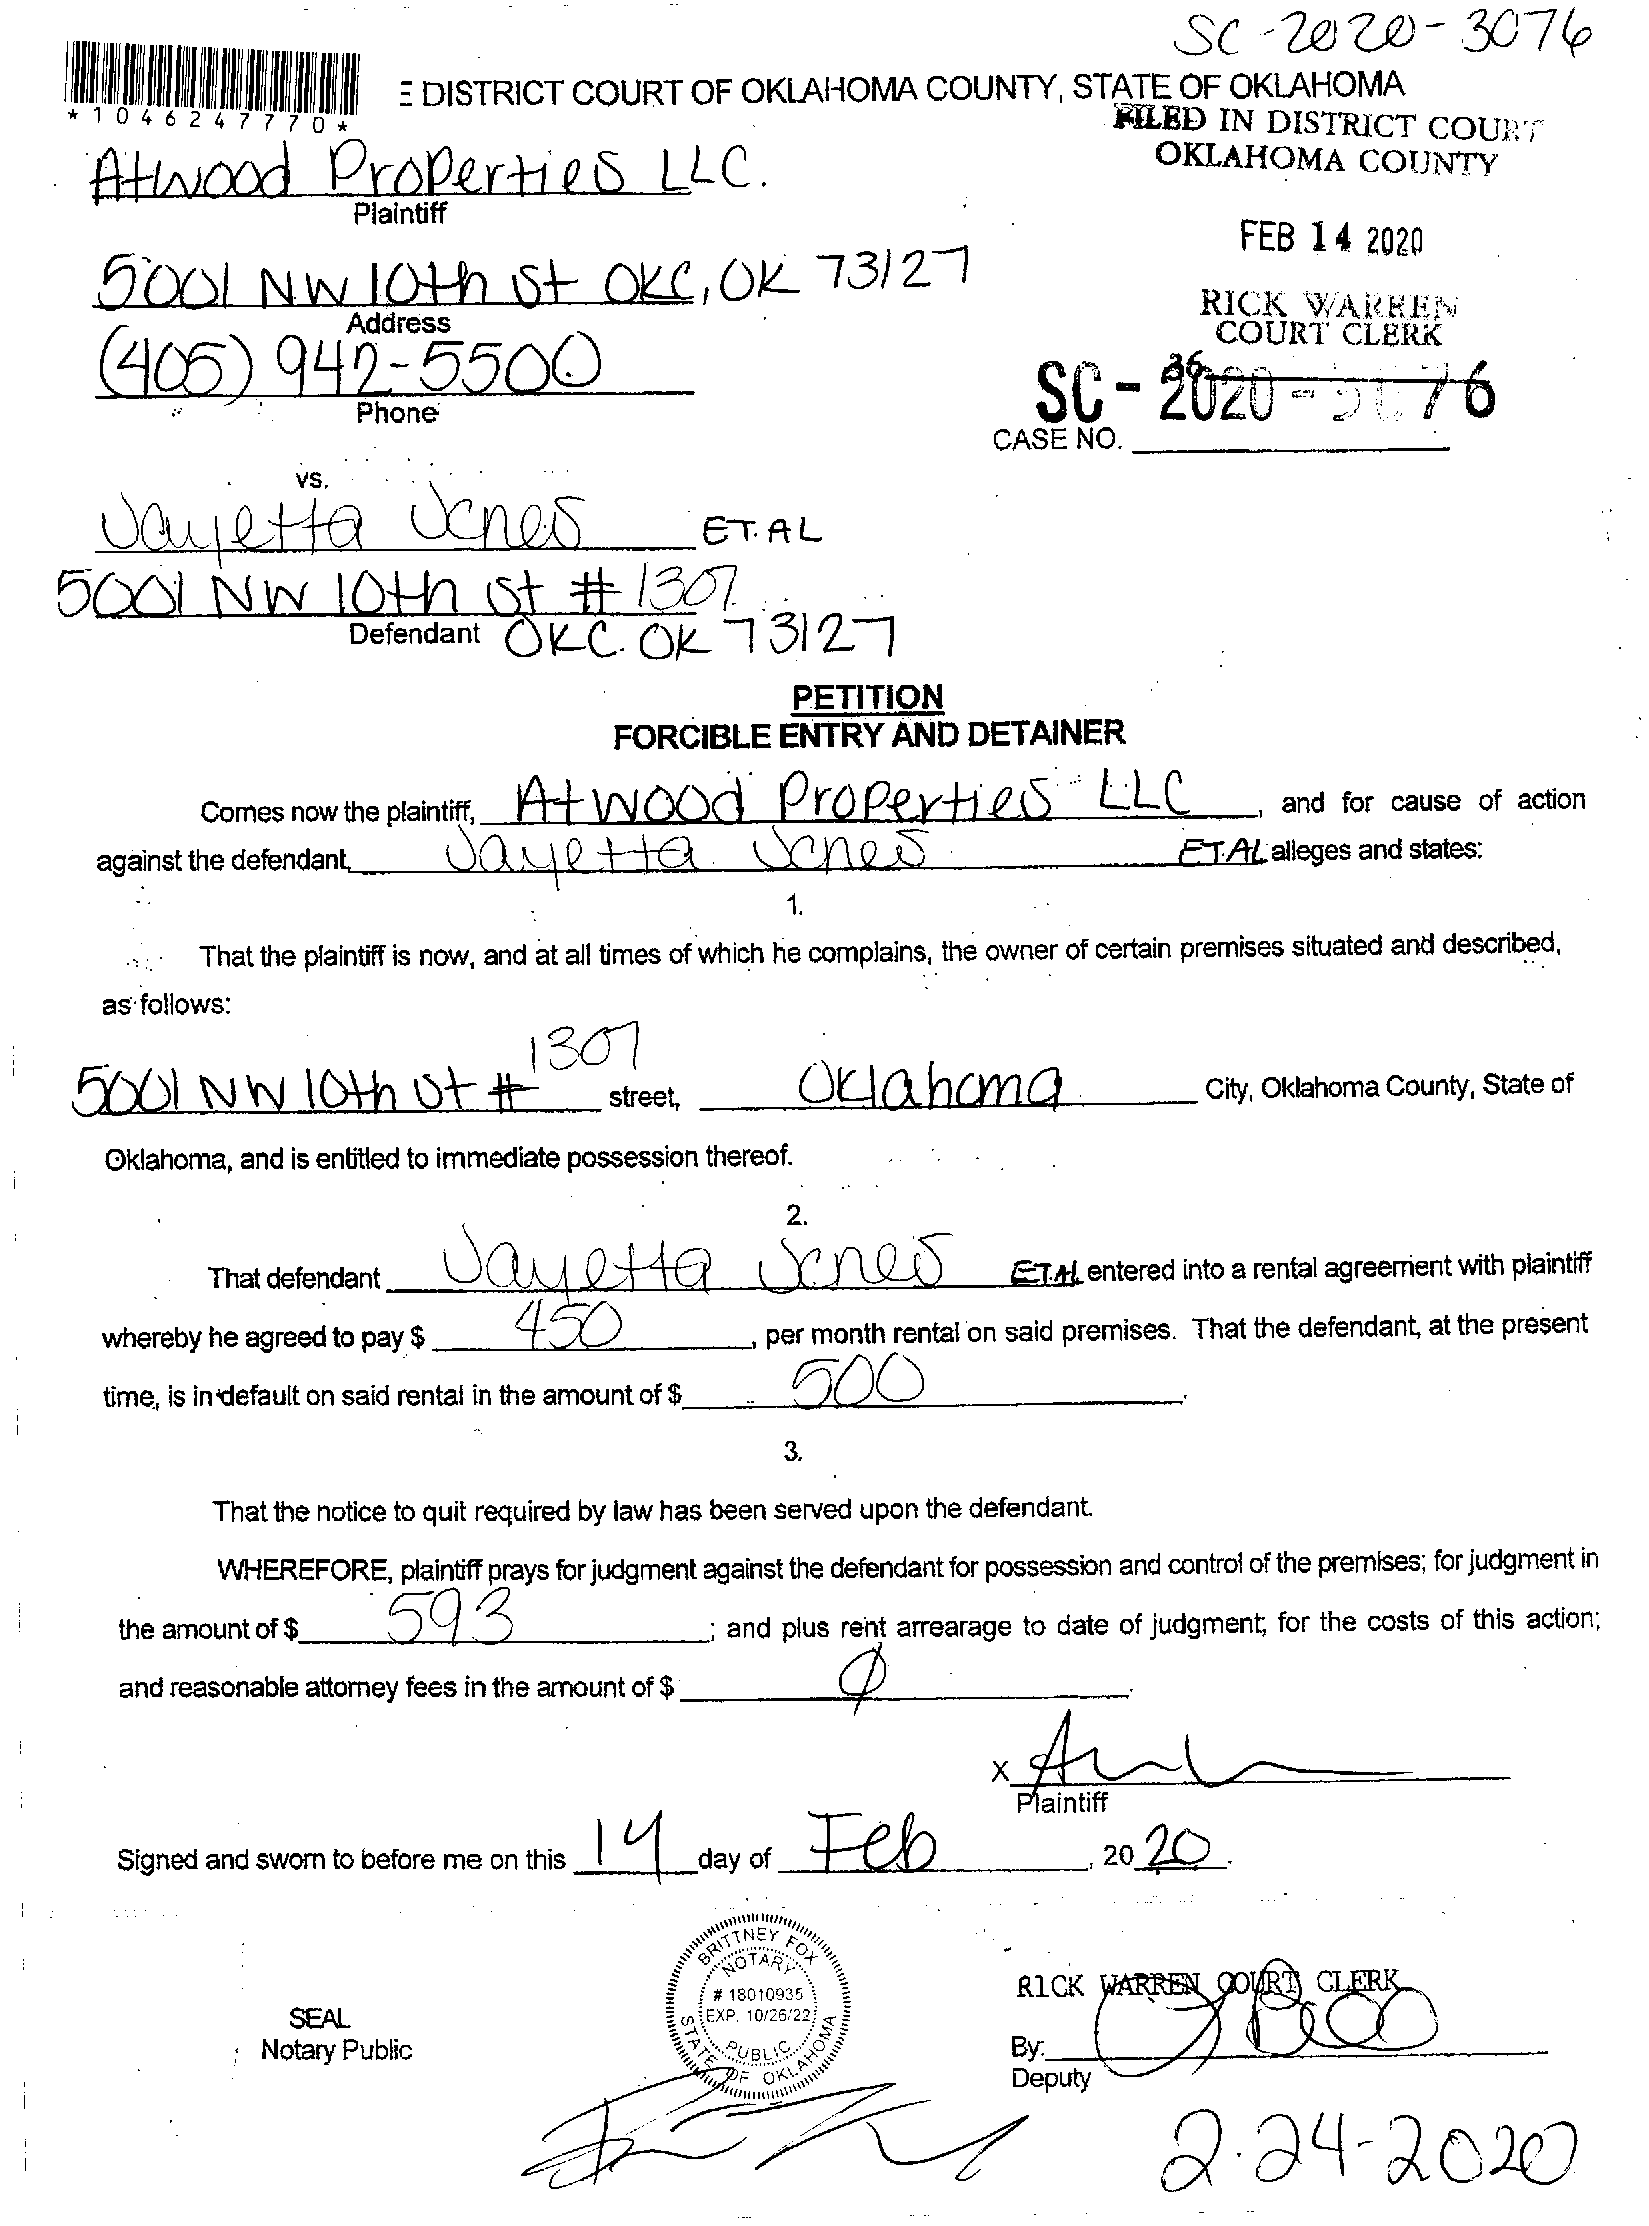 SC-2020-3076
E DISTRICT COURT OF OKLAHOMA COUNTY, STATE OF OKLAHOMA
*1046247770*
FILED IN DISTRICT COURT
OKLAHOMA COUNTY
Atwood Properties LLC.
Plaintiff
FEB 14 2020
5001 NW 10th St OKC, OK 73127
Address
RICK WARREN
COURT CLERK
(405) 942-5500
Phone
36
SC - 2020 - 3076
CASE NO.
vs.
Jayetta Jones ET. AL
5001 NW 10th St # 1307
Defendant OKC. OK 73127
PETITION
FORCIBLE ENTRY AND DETAINER
Comes now the plaintiff, Atwood Properties LLC, and for cause of action
against the defendant, Jayetta Jones ET. AL alleges and states:
1.
That the plaintiff is now, and at all times of which he complains, the owner of certain premises situated and described,
as follows:
5001 NW 10th St # 1307 street, Oklahoma City, Oklahoma County, State of
Oklahoma, and is entitled to immediate possession thereof.
2.
That defendant Jayetta Jones ET. AL entered into a rental agreement with plaintiff
whereby he agreed to pay $ 450, per month rental on said premises. That the defendant, at the present
time, is in default on said rental in the amount of $ 500.
3.
That the notice to quit required by law has been served upon the defendant.
WHEREFORE, plaintiff prays for judgment against the defendant for possession and control of the premises; for judgment in
the amount of $ 593; and plus rent arrearage to date of judgment; for the costs of this action;
and reasonable attorney fees in the amount of $ 0.
X
Plaintiff
Signed and sworn to before me on this 14 day of Feb, 2020.
BRITTNEY FOX
NOTARY
# 18010935
EXP. 10/26/22
PUBLIC
STATE OF OKLAHOMA
SEAL
Notary Public
RICK WARREN COURT CLERK
By:
Deputy
2-24-2020